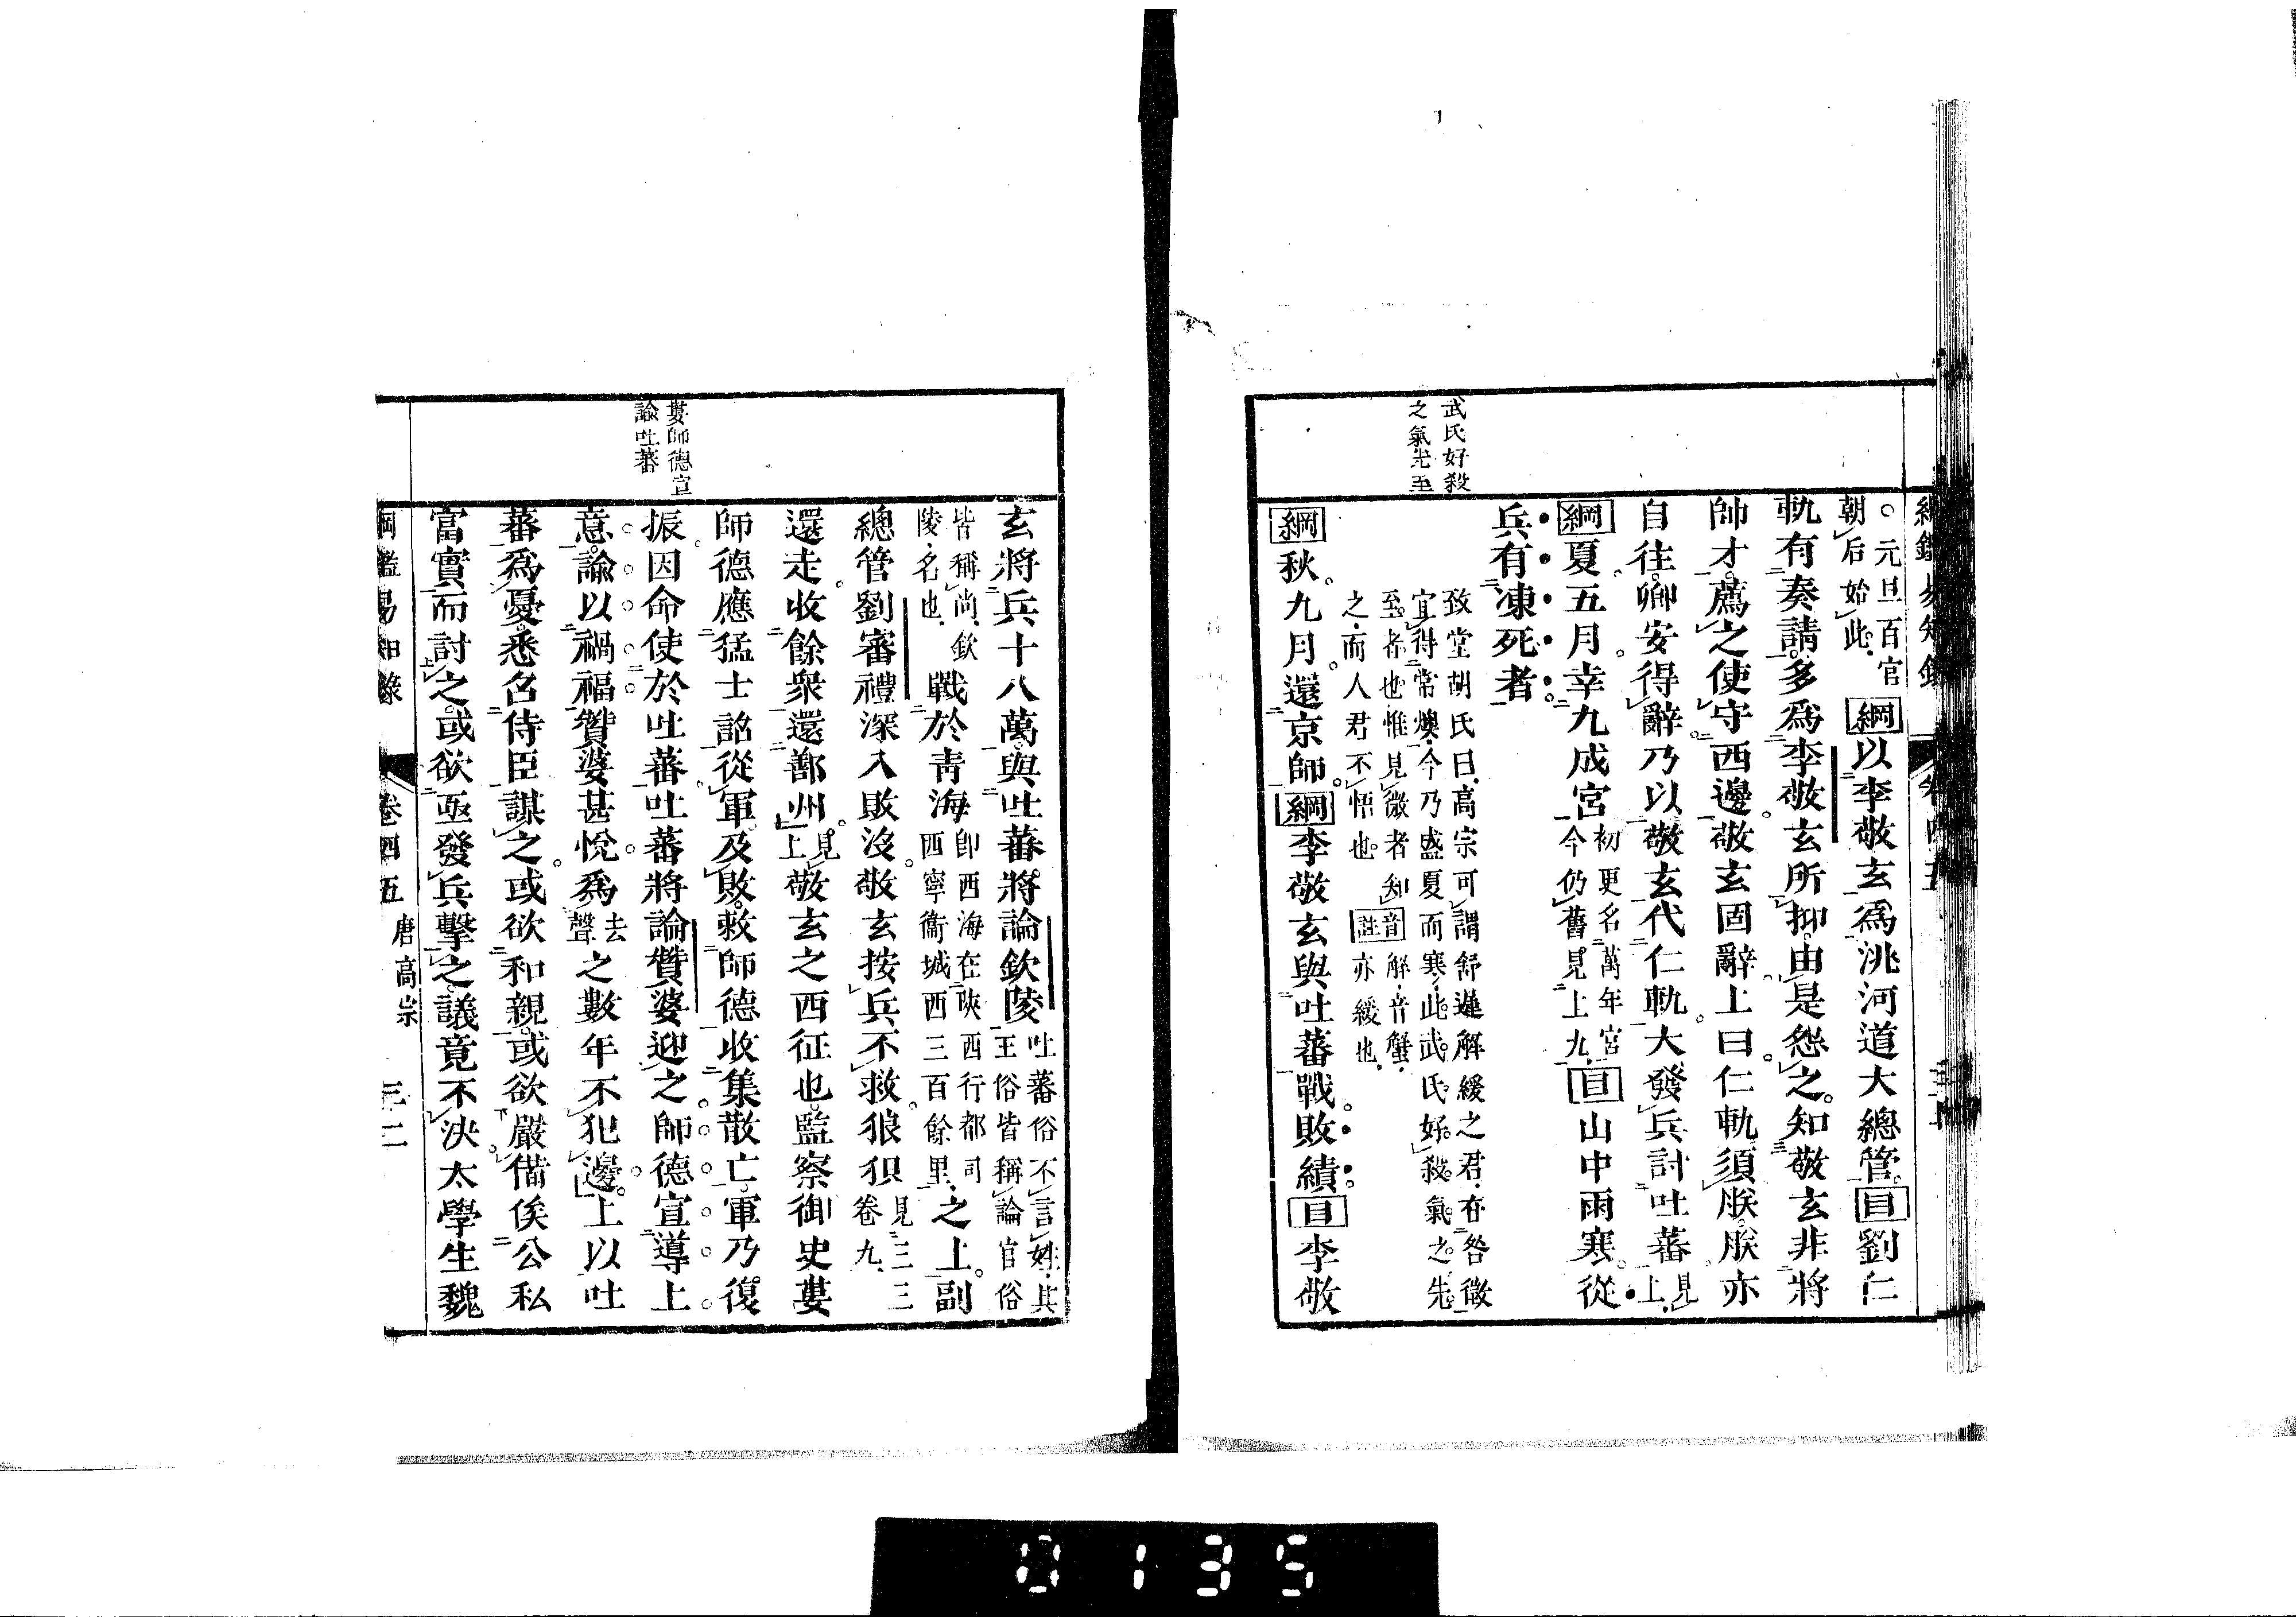 武氏好殺
之氣先至
○元旦百官
朝后始此
綱以李敬玄爲洮河道大總管目劉仁
軌有奏請多爲李敬玄所抑由是怨之知敬玄非將
帥才薦之使守西邊敬玄固辭上曰仁軌須朕朕亦
自往卿安得辭乃以敬玄代仁軌大發兵討吐蕃
見
上
綱夏五月幸九成宮
初更名萬年宮
今仍舊見上九
目山中雨寒從
兵有凍死者
致堂胡氏曰高宗可謂舒遲解緩之君在咎徵
宜得常燠今乃盛夏而寒此武氏好殺氣之先
至者也惟見微者知
之而人君不悟也
音
註
解音蟹
亦緩也
綱秋九月還京師綱李敬玄與吐蕃戰敗績目李敬
婁師德宣
諭吐蕃
玄將兵十八萬與吐蕃將論欽陵
吐蕃俗不言姓其
王俗皆稱論官俗
皆稱尚欽
陵名也
戰於青海
卽西海在陝西行都司
西寧衞城西三百餘里
之上副
總管劉審禮深入敗沒敬玄按兵不救狼狽
見三三
卷九
還走收餘衆還鄯州
見
上
敬玄之西征也監察御史婁
師德應猛士詔從軍及敗敕師德收集散亡軍乃復
振因命使於吐蕃吐蕃將論贊婆迎之師德宣導上
意諭以禍福贊婆甚悅爲
去
聲
之數年不犯邊上以吐
蕃爲憂悉召侍臣謀之或欲和親或欲嚴備俟公私
富實而討之或欲亟發兵擊之議竟不決太學生魏
綱鑑易知錄 卷四五 唐高宗 三二
0135